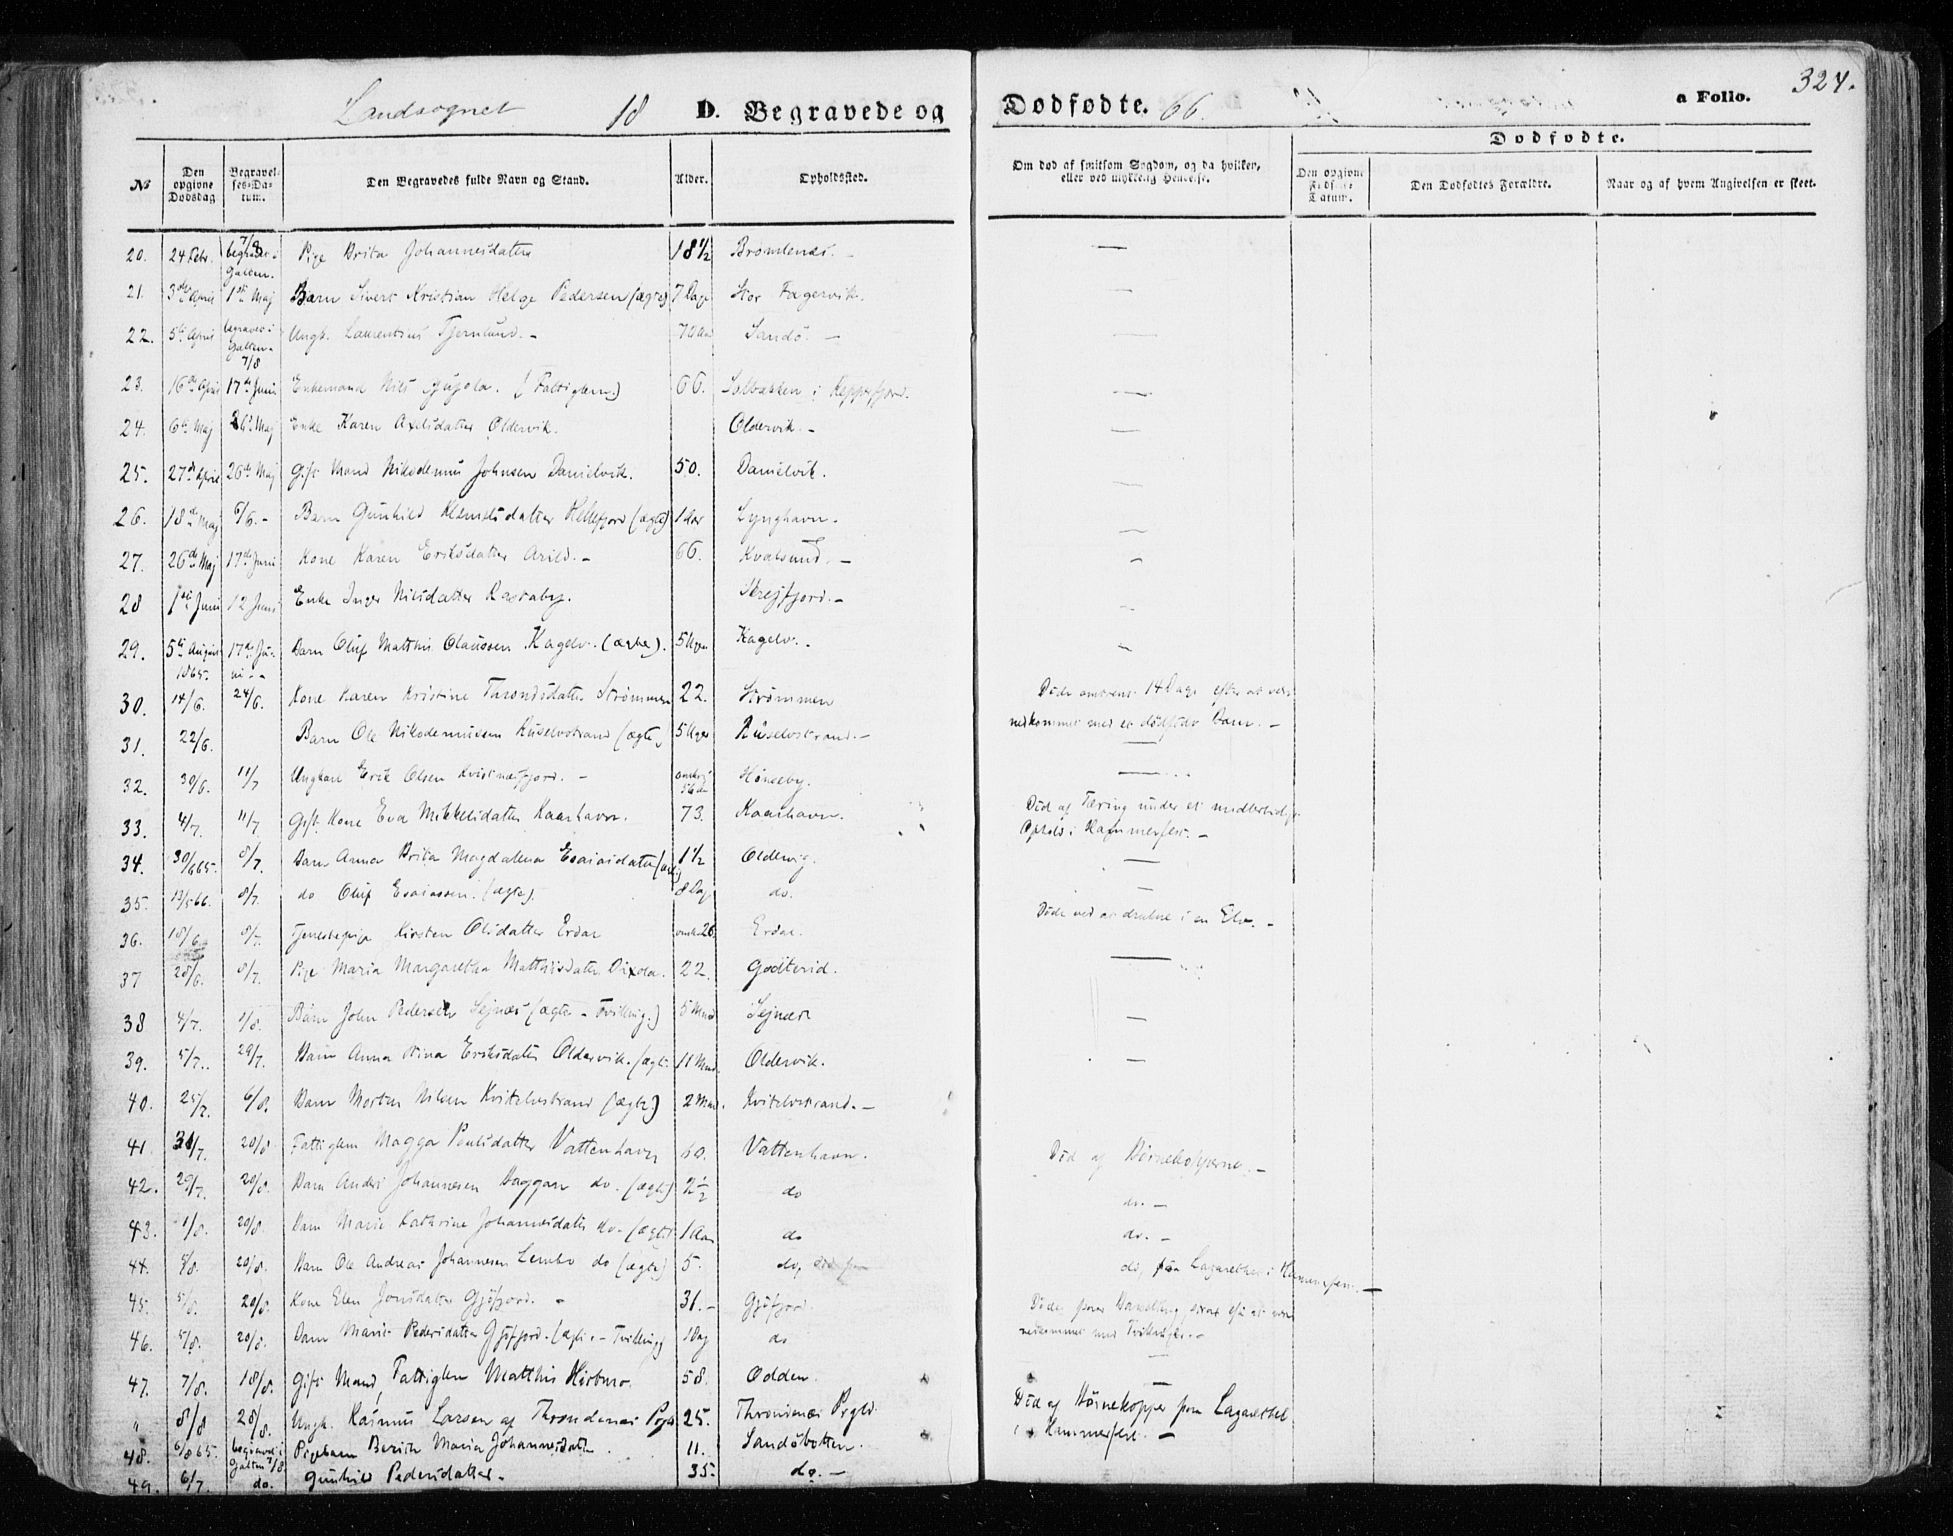 Landsognet 18 D. Begravede og Dødfødte. 66. a Folio. 324.
Dødfødte.
No
Den opgivne Dødsdag
Begravelses-Datum.
Den Begravedes fulde Navn og Stand.
Alder.
Opholdssted.
Om død af smitsom Sygdom, og da hvilken, eller ved ulykkelig Hendelse.
Den opgivne Fødsels-Datum.
Den Dødfødtes Forældre.
Naar og af hvem Angivelsen er skeet.
20. 24 Febr. 7/8 begravet i Galten. Pige Brita Johannesdatter 18 1/2 Bromlenæs. —
21. 3die April 1ste Maj Barn Sivert Kristian Helge Pedersen (ægte) 7 Dage Stor Fagervik. —
22. 5te April begravet i Galten 7/8 Ungk. Laurentius Tjernlund. Sandö. —
23. 16de April 17de Juni Enkemand Nils (Fattiglem) 66. i Reppefjord. —
24. 6te Maj 26de Maj Enke Karen Axelsdatter Oldervik. Oldervik. —
25. 27de April 26de Maj Gift Mand Nikodemus Johnsen Danielvik. 50. Danielvik. —
26. 18de Maj 6/6. Barn Gunhild Klemetsdatter Hellefjord (ægte) 1 Aar Lynghavn. —
27. 26de Maj 17de Juni Kone Karen Eriksdatter Arild. 66. Kvalsund. —
28 1ste Juni 12 Juni Enke Inger Nilsdatter Skrejfjord. —
29. 5te August 1865. 17de Juni Barn Oluf Matthis Olaussen Kagelv. (ægte). 5 Uger Kagelv. —
30. 14/6. 24/6. Kone Karen Kristine Trondsdatter Strömmen 22. Strömmen Döde omtrent 14 Dage efter at være
nedkommet med et dödfödt Barn. —
31. 22/6. Barn Ole Nikodemussen Kuselvstrand (ægte) 5 Uger Kuselvstrand. —
32. 30/6. 11/7 Ungkarl Erik Olsen Kvitnæsfjord. Hönseby. —
33. 4/7. 11/7. Gift Kone Eva Mikkelsdatter Kaarhavn. 73. Kaarhavn. Död af Tæring under et midlertidigt
Ophold i Hammerfest. —
34. 30/6 65. 8/7. Barn Anna Brita Magdalena Esaiasdatter (ægte) 1 1/2 Oldervig. —
35. 13/5 66. 8/7. do Oluf Esaiassen. (ægte). 8 Dage do. —
36. 18/6. 8/7. Tjenestepige Kirsten Olsdatter Erdal omtr. 26. Erdal. Döde ved at drukne i en Elv. —
37 28/6. 8/7. Pige Maria Margaretha Matthisdatter 22. —
38 4/7. 1/8. Barn John Pedersen Sejnæs (ægte - Tvilling.) 5 Mnd Sejnæs —
39. 5/7. 29/7. Barn Anna Stina Eriksdatter Oldervik. (ægte. 11 Mnd. Oldervik. —
40. 25/7. 6/8. Barn Morten Nilsen Kvitelvstrand (ægte) 2 Mnd. Kvitelvstrand. —
41. 31/7. 20/8 Fattiglem Magga Poulsdatter Vattenhavn 60. Vattenhavn. Död af Börnekopperne. —
42. 29/7. 20/8. Barn Anders Johannesen Haggan do. (ægte) 2 1/2 do do. —
43. 1/8. 20/8. Barn Marie Kathrine Johannesdatter do. (ægte) 1 Aar do do. —
44. 5/8. 20/8. Barn Ole Andreas Johannesen Lembo do (ægte) 5. do, do, paa Lazarethet i Hammerfest. —
45. 5/8. 20/8. Kone Elen Jonsdatter Gjöfjord. 31. Gjöfjord. Döde paa strax efter at være
nedkommet med Tvillinger. —
46. 5/8. 20/8. Barn Marie Pedersdatter Gjöfjord. (ægte - Tvilling) 1 Dag do —
47. 7/8. 18/8. Gift Mand, Fattiglem Matthis 58. Odden. —
" 8/8 28/8. Ungk. Rasmus Larsen af Throndenæs Pgld 25. Throndenæs Prgld. Död af Börnekopper paa Lazarethet
i Hammerfest. —
48. 6/8 65. begravet i Galten 7/8 Pigebarn Berith Maria Johannesdatter. 11. Sandöbotten.
49. 6/7. do. Gunhild Pedersdatter. 35. do. —